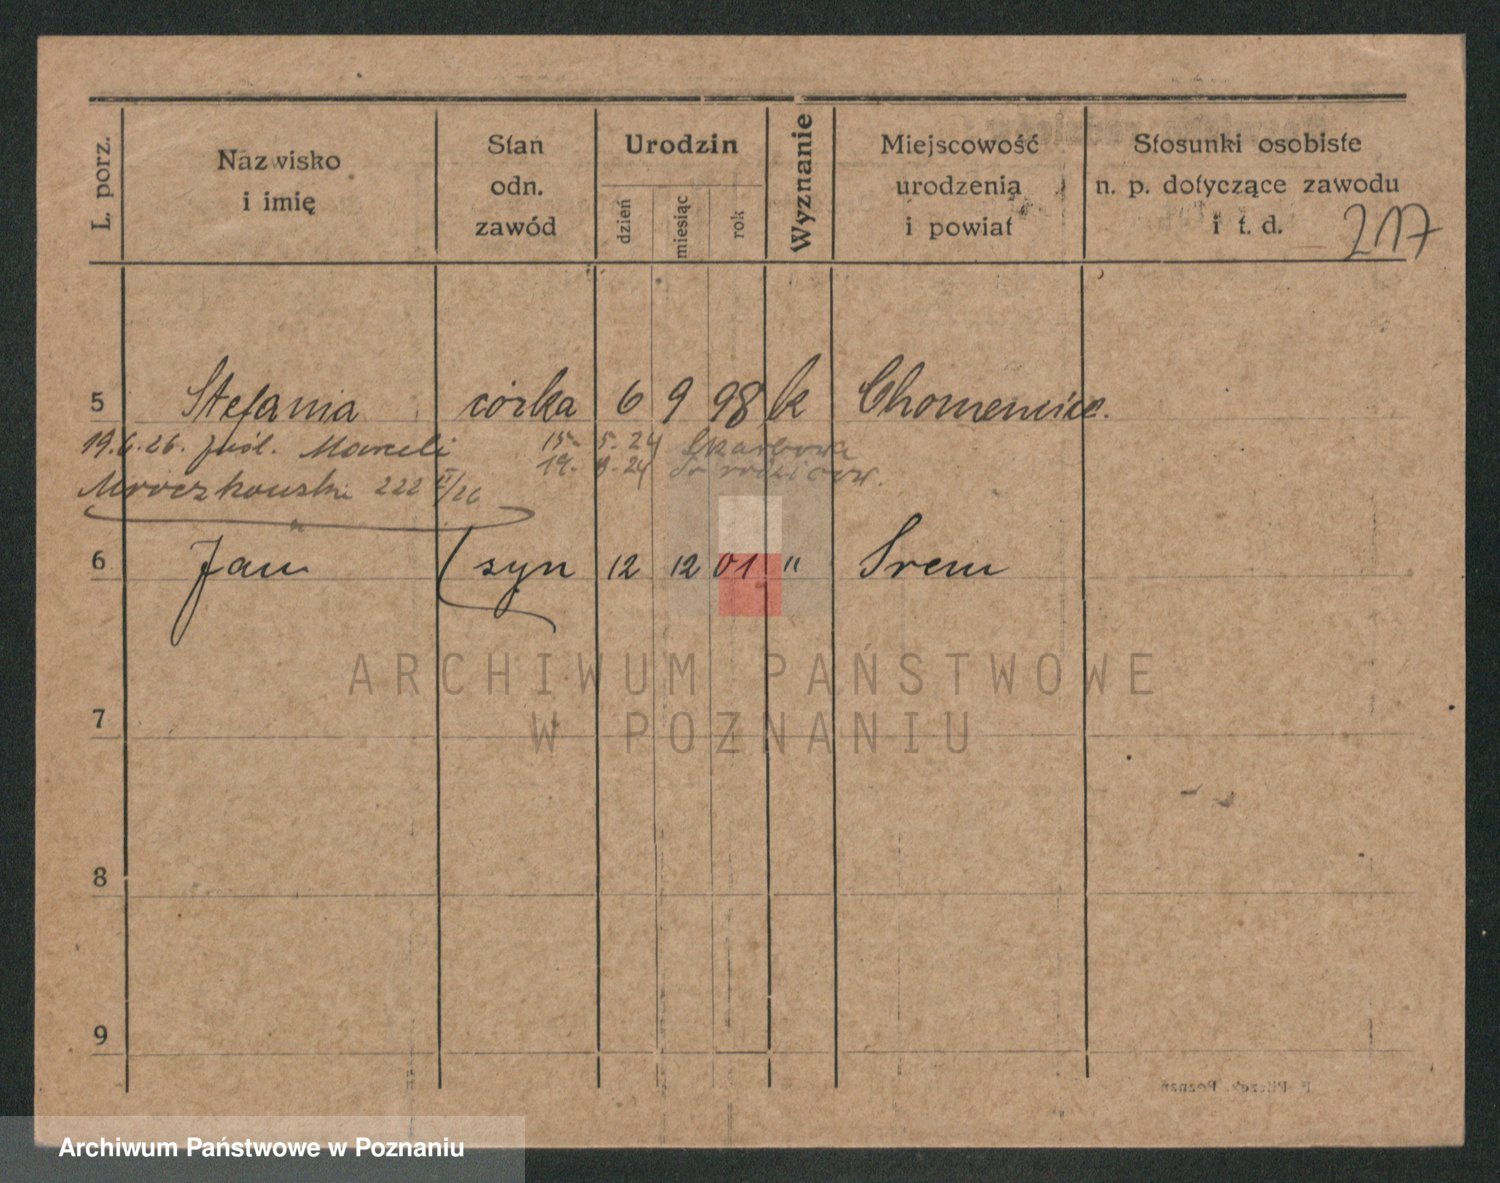 L. porz. Nazwisko i imię Stan odn. zawód Urodzin dzień miesiąc rok Wyznanie Miejscowość urodzenia i powiat Stosunki osobiste n. p. dotyczące zawodu i t. d.
217
5 Stefania córka 6 9 98 k Chomencice.
19.6.26. zaśl. Marceli 15. 5. 24
Mroczkowski 222 19. 24 do rodziców.
6 Jan syn 12 12 01 " Śrem
ARCHIWUM PAŃSTWOWE
7
W POZNANIU
8
9
F. Pilczek, Poznań
Archiwum Państwowe w Poznaniu